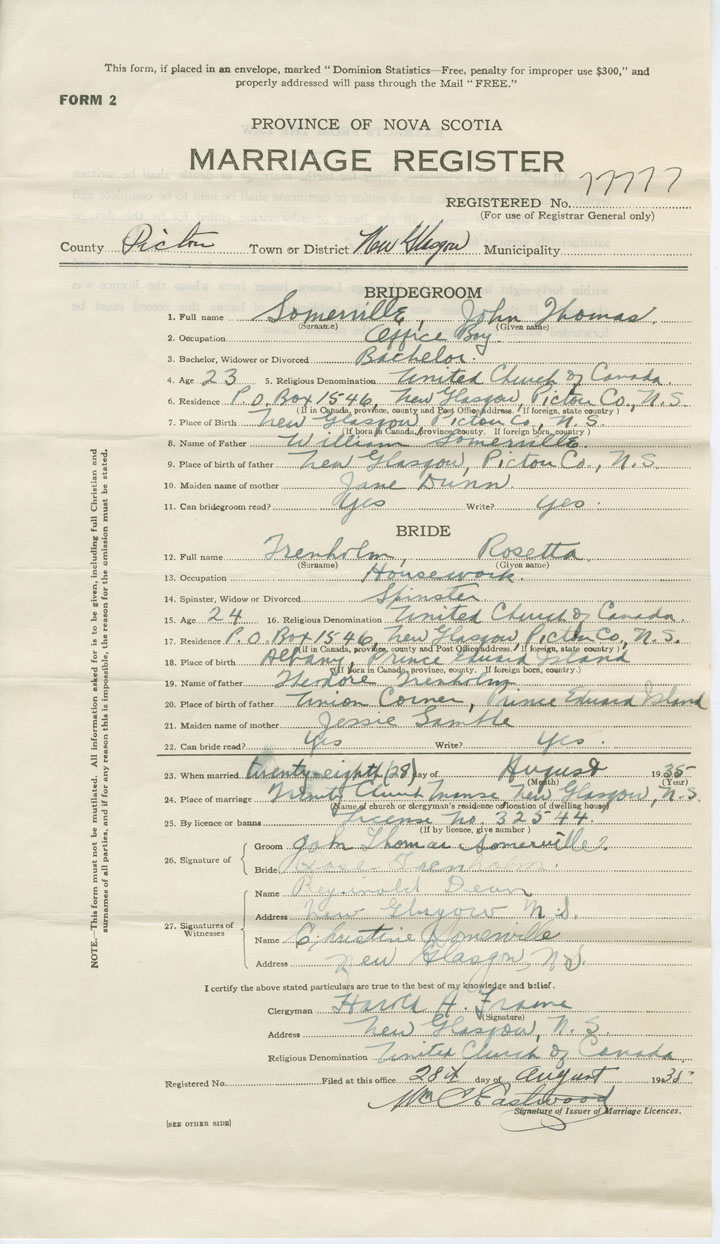 This form, if placed in an envelope, marked "Dominion Statistics—Free, penalty for improper use $300," and
properly addressed will pass through the Mail "FREE."
FORM 2
PROVINCE OF NOVA SCOTIA
MARRIAGE REGISTER
REGISTERED No. 77777
(For use of Registrar General only)
County Pictou Town or District New Glasgow Municipality
BRIDEGROOM
1. Full name Somerville, John Thomas.
(Surname) (Given name)
2. Occupation Office Boy.
3. Bachelor, Widower or Divorced Bachelor.
4. Age 23 5. Religious Denomination United Church of Canada.
6. Residence P.O. Box 1546, New Glasgow, Pictou Co., N.S
(If in Canada, province, county and Post Office address. If foreign, state country)
7. Place of Birth New Glasgow, Pictou Co., N.S.
(If born in Canada, province county. If foreign born, country)
8. Name of Father William Somerville.
9. Place of birth of father New Glasgow, Pictou Co., N.S.
10. Maiden name of mother Jane Dunn.
11. Can bridegroom read? Yes Write? Yes.
BRIDE
12. Full name Trenholm, Rosetta
(Surname) (Given name)
13. Occupation Housework.
14. Spinster, Widow or Divorced Spinster
15. Age 24 16. Religious Denomination United Church of Canada.
17. Residence P.O. Box 1546, New Glasgow, Pictou Co., N.S.
(If in Canada, province, county and Post Office address. If foreign, state country)
18. Place of birth Albany, Prince Edward Island
(If Born in Canada, province, county. If foreign born, country.)
19. Name of father Theodore Trenholm
20. Place of birth of father Union Corner, Prince Edward Island
21. Maiden name of mother Jessie
22. Can bride read? Yes Write? Yes.
23. When married twenty-eighth (28) day of August 1935
(Month) (Year)
24. Place of marriage Trinity Church Manse New Glasgow, N.S.
(Name of church or clergyman's residence or location of dwelling house)
25. By licence or banns License No. 32544.
(If by licence, give number)
26. Signature of
Groom John Thomas Somerville.
Bride Trenholm.
27. Signatures of Witnesses
Name Dean
Address New Glasgow N.S.
Name Christine Somerville
Address New Glasgow, N.S.
I certify the above stated particulars are true to the best of my knowledge and belief.
Clergyman Harold H. Frame
(Signature)
Address New Glasgow, N.S.
Religious Denomination United Church of Canada
Registered No. Filed at this office 28th day of August 1935
Wm C Eastwood
Signature of Issuer of Marriage Licences.
[SEE OTHER SIDE]
NOTE.—This form must not be mutilated. All information asked for is to be given, including full Christian and
surnames of all parties, and if for any reason this is impossible, the reason for the omission must be stated.